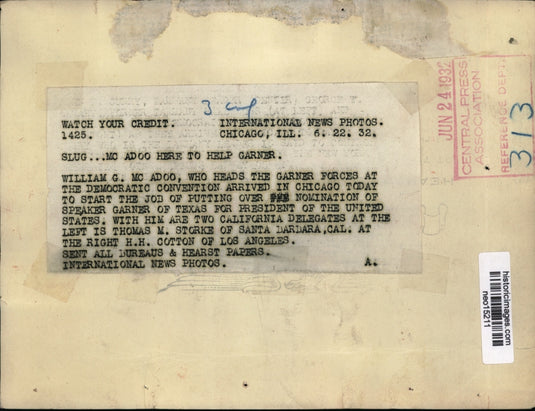 3 col
WATCH YOUR CREDIT. INTERNATIONAL NEWS PHOTOS.
1425. CHICAGO, ILL. 6. 22. 32.
SLUG...MC ADOO HERE TO HELP GARNER.
WILLIAM G. MC ADOO, WHO HEADS THE GARNER FORCES AT
THE DEMOCRATIC CONVENTION ARRIVED IN CHICAGO TODAY
TO START THE JOD OF PUTTING OVER NOMINATION OF
SPEAKER GARNER OF TEXAS FOR PRESIDENT OF THE UNITED
STATES. WITH HIM ARE TWO CALIFORNIA DELEGATES AT THE
LEFT IS THOMAS M. STORKE OF SANTA DARDARA,CAL. AT
THE RIGHT H.H. COTTON OF LOS ANGELES.
SENT ALL BUREAUS & HEARST PAPERS.
INTERNATIONAL NEWS PHOTOS. A.
JUN 24 1932
CENTRAL PRESS
ASSOCIATION
REFERENCE DEPT.
313
historicimages.com
neo15211